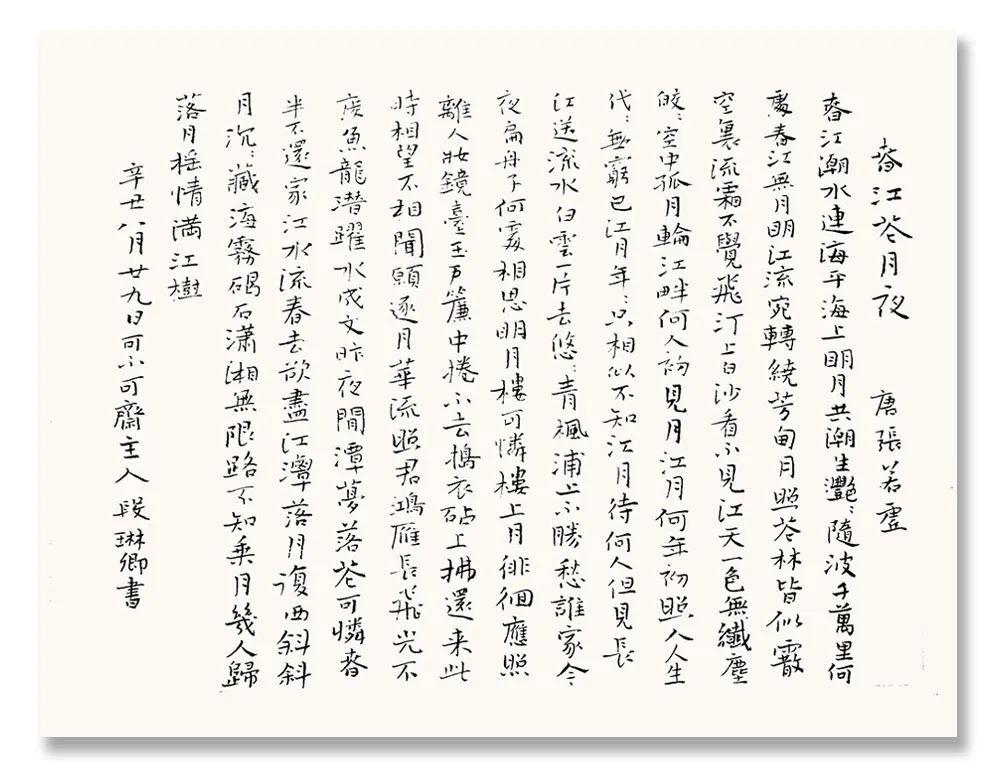 春江花月夜 唐張若虛
春江潮水連海平海上明月共潮生灩：隨波千萬里何
處春江無月明江流宛轉繞芳甸月照花林皆似霰
空裏流霜不覺飛汀上白沙看不見江天一色無纖塵
皎：空中孤月輪江畔何人初見月江月何年初照人人生
代：無窮已江月年：只相似不知江月待何人但見長
江送流水白雲一片去悠：青楓浦上不勝愁誰家今
夜扁舟子何處相思明月樓可憐樓上月徘徊應照
離人妝鏡臺玉戶簾中捲不去搗衣砧上拂還来此
時相望不相聞願逐月華流照君鴻雁長飛光不
度魚龍潛躍水成文昨夜閒潭夢落花可憐春
半不還家江水流春去欲盡江潭落月復西斜斜
月沉：藏海霧碣石瀟湘無限路不知乘月幾人歸
落月搖情滿江樹
辛丑八月廿九日可不可齋主人段琳卿書